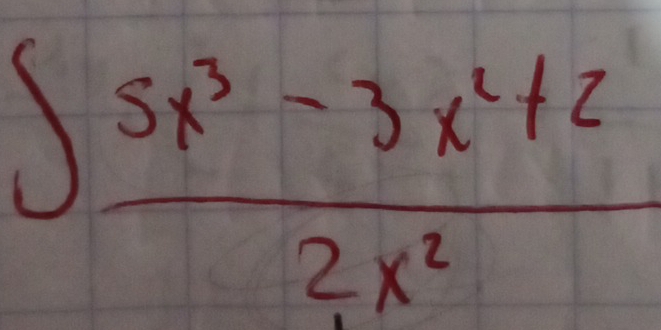 ∫ 5x³ - 3x² + 2
2x²